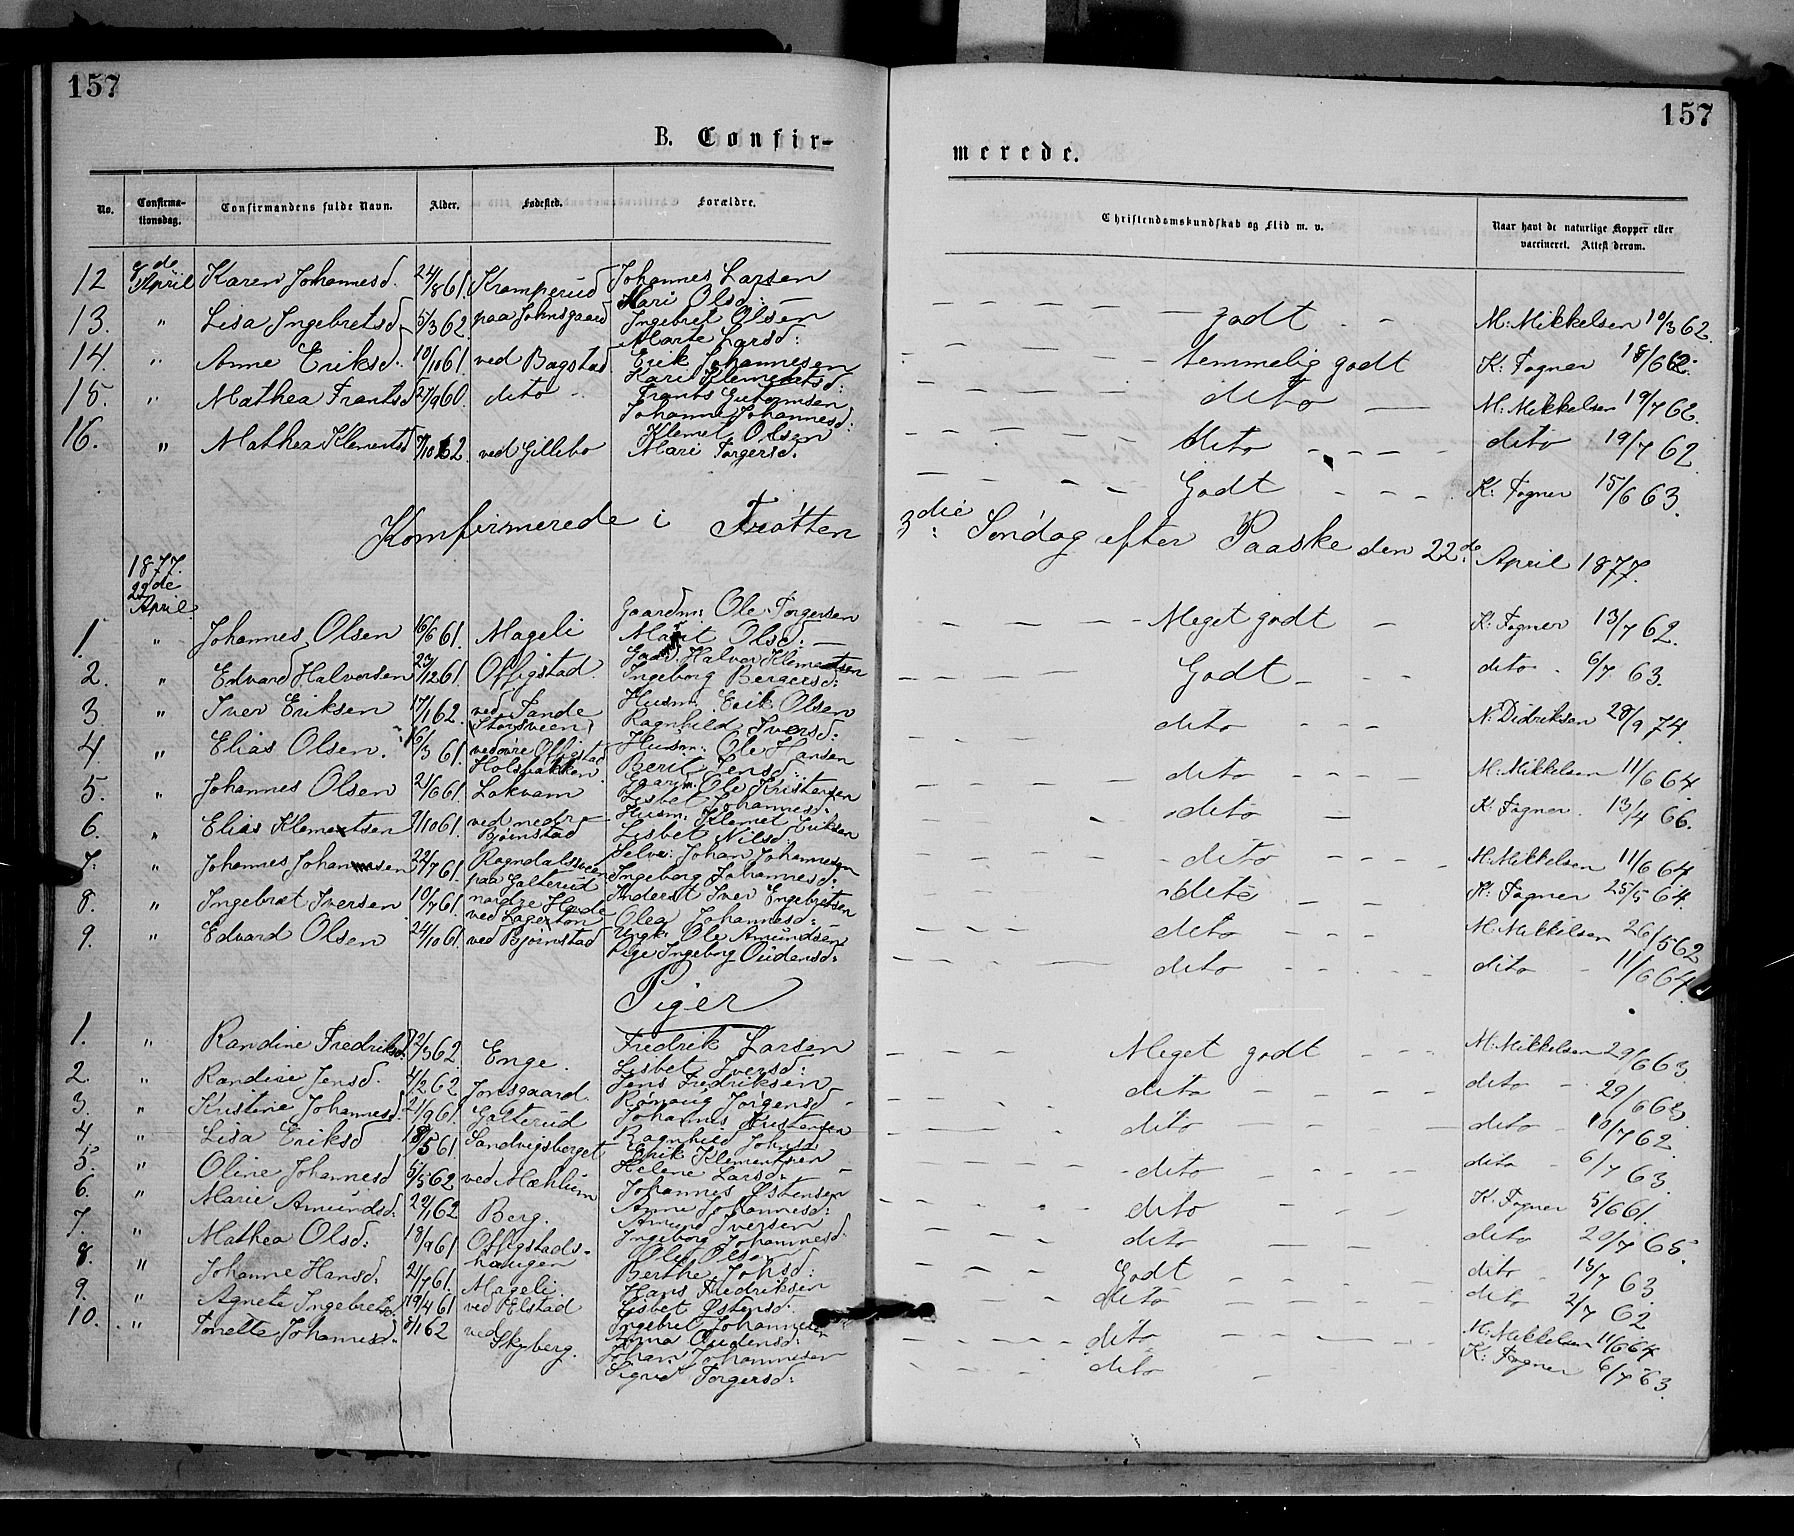 157
157
B. Confir-
merede.
No.
Confirma-
tionsdag.
Confirmandens fulde Navn.
Alder.
Fødested.
Forældre.
Christendomskundskab og Flid m. v.
Naar havt de naturlige Kopper eller
vaccineret. Attest derom.
12 8de April Karen Johannesd. 24/8 61. Kramperud Johannes Larsen
Mari Olsd: —
— — — — godt. - — M: Mikkelsen 10/3 62.
13. " Lisa Ingebretsd 5/3 62. paa Johnsgaard Ingebret Olsen
Marte Larsd:
— — — temmelig godt K: Fogner 18/6 62.
14. " Anne Eriksd. 10/10 61. ved Bagstad Erik Johannesen
Kari Klemetsd:
— — — dito — M: Mikkelsen 19/7 62.
15. " Mathea Frantsd 27/9 60. dito Frants Guttormsen
Johanne Johannesd:
— — — dito — — — dito 19/7 62.
16. " Mathea Klemetsd /10 62. ved Gillebo Klemet Olsen
Mari Torgersd.
— — — Godt — — — K: Fogner 15/6 63.
Konfirmerede i Trøtten 3die Søndag efter Paaske den 22de April 1877.
1877.
22de
April
1. " Johannes Olsen 16/6 61. Mageli Gaardm: Ole Torgersen
Marit Olsd: —
— — — Meget godt — K: Fogner 13/7 62.
2. " Edvard Halvorsen 23/12 61. Offigstad. Gaar. Halvor Klemetsen
Ingeborg Bergersd:
— — — Godt — — dito 6/7 63.
3. " Iver Eriksen 17/1 62. ved Sande
(Storsveen) Husm. Erik Olsen
Ragnhild Iversd:
dito - - - N: Didriksen 28/9 74.
4. " Elias Olsen. 16/3 61. ved øvre Offigstad
Holsbakken. Husm: Ole Hansen
Berit Jensd
— — — dito - - - M: Mikkelsen 11/6 64.
5. " Johannes Olsen 21/6 61. Lokvam Gaarm. Ole Kristensen
Lisbet Johannesd:
dito — K: Fogner. 13/4 66.
6. " Elias Klemetsen /10 61. ved nedre
Bjørnstad Husm. Klemet Eriksen
Lisbet Nilsd
- dito - - - M: Mikkelsen 11/6 64
7. " Johannes Johannesen 22/7 61. Ragndalsveen
paa Galterud Selve: Johan Johannesen
Ingeborg Johannesd:
dito K: Fogner 25/5 64.
8. " Ingebret Iversen 10/7 61. nordre
ved Iver Engebretsen
Olea Johannesd:
dito - - - M: Mikkelsen 26/5 62
9. " Edvard Olsen 24/10 61. ved Bjørnstad Ungk: Ole Amundsen
Pige Ingeborg Oudensd:
dito - - - dito 11/6 64.
Piger
1. " Randine Fredriksd. 12/3 62. Enge. Fredrik Larsen
Lisbet Iversd:
— — — Meget godt - - - M: Mikkelsen 29/6 63.
2. " Randine Jensd. 4/2 62 Jonsgaard. Jens Fredriksen —
Rønnug Jørgensd -
dito — — — dito 29/6 63.
3. " Kristine Johannesd. 21/9 61. Galterud Johannes Kristensen
Ragnhild Johnsd
dito — — — dito 10/7 62.
4. " Lisa Eriksd 18/5 61 Sandvigsberget Erik Klementsen
Helene Larsd:
dito — — — dito 6/7 63.
5. " Oline Johannesd 5/5 62 ved Mæhlum Johannes Østensen
Anne Johannesd:
dito K: Fogner 5/6 61.
6. " Marie Amundsd: 22/1 62 Berg. Amund Iversen
Ingeborg Johannesd.
dito — — dito 20/7 65.
7. " Mathea Olsd: 18/9 61 Offigstads-
haugen Ole Olsen
Berthe Johsd:
Godt — — — dito 13/7 63.
8. " Johanne Hansd: 21/7 61. Mageli. Hans Fredriksen
Lisbet Østensd:
dito — — — dito 2/7 62
9. " Agnete Ingebretsd 19/4 61 ved Elstad Ingebret Johannesen
Anna Oudensd:
dito — — — M: Mikkelsen 11/6 64
10. " Tonette Johannesd. 8/1 62 ved
Skyberg. Johan Johannesen
Sigrid Torgersd:
dito — K: Fogner 6/7 63.